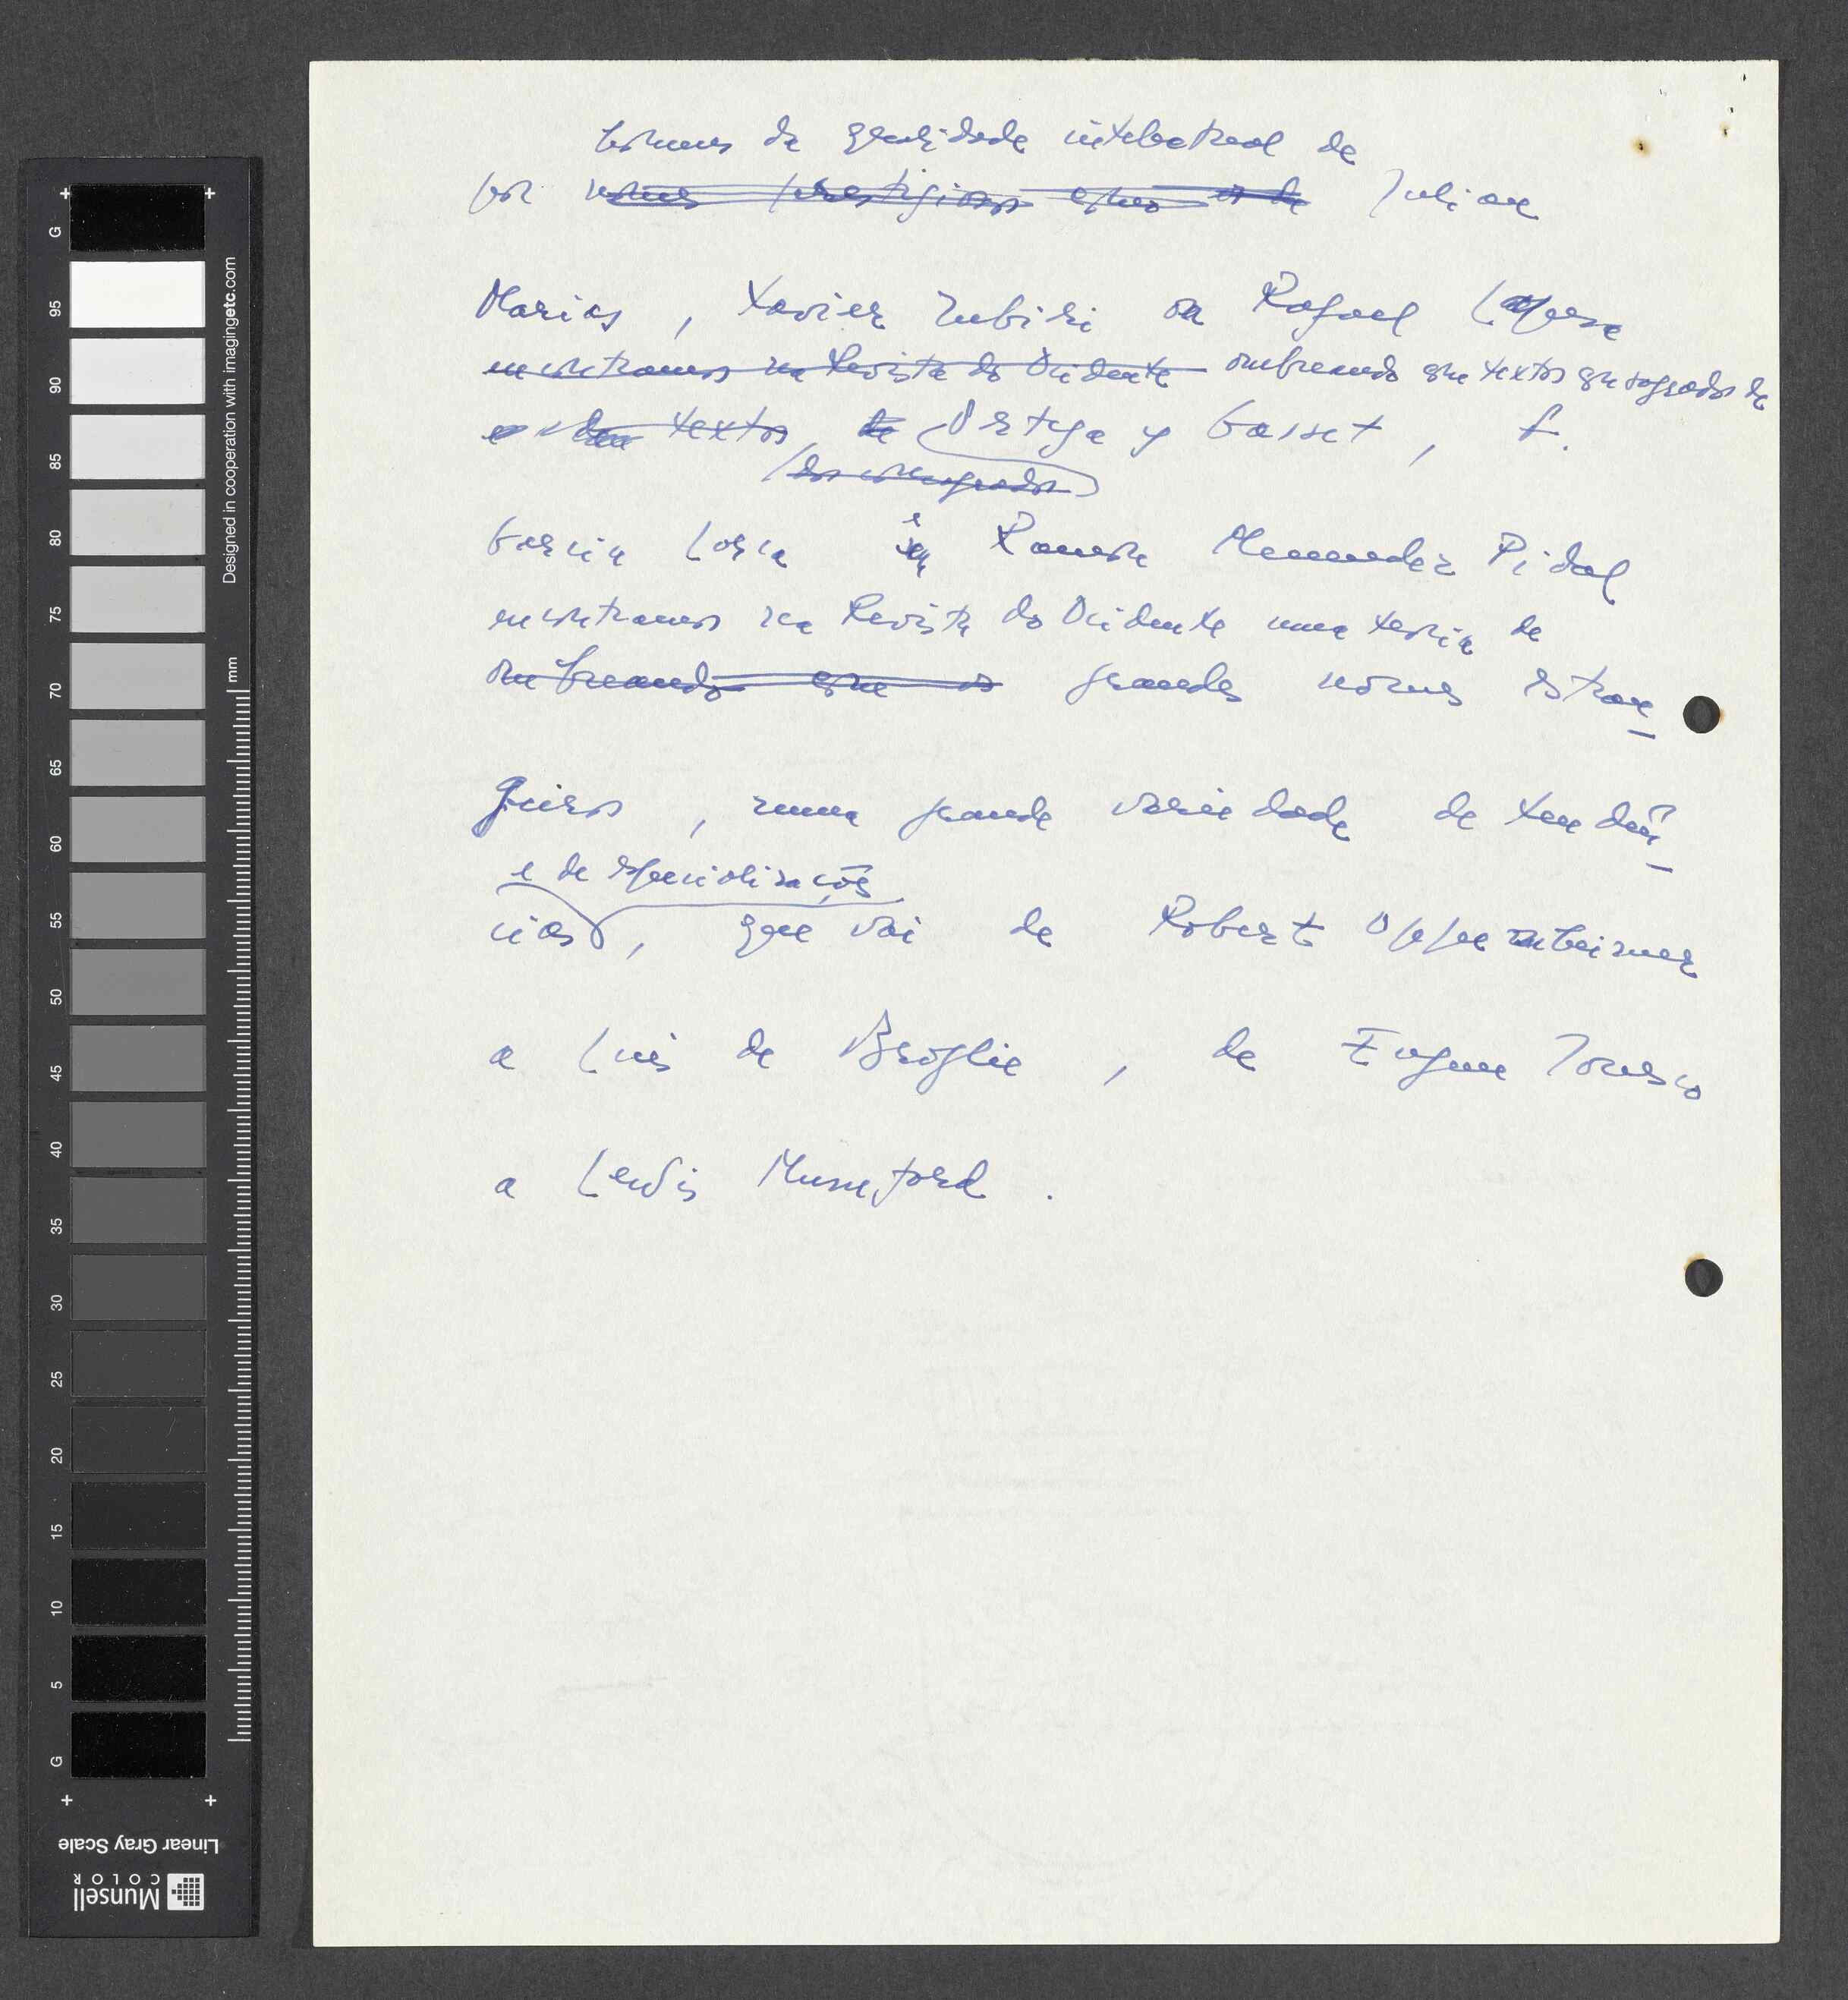 homens da qualidade intelectual de
por nomes prestigiosos como os de Julian
Marias, Xavier Zubiri ou Rafael Lapesa
encontramos na Revista do Ocidente ombreando com textos consagrados de
textos de Ortega y Gasset, F.
dos consagrados
Garcia Lorca e Ramon Menendez Pidal
encontramos na Revista do Ocidente uma teoria de
ombreando com os grandes nomes estran-
geiros, numa grande variedade de tendên-
e de especializações
cias, que vai de Robert Oppenheimer
a Luis de Broglie, de Eugene Ionesco
a Lewis Mumford.
G
95
90
85
80
75
70
65
60
55
50
45
40
35
30
25
20
15
10
5
G
mm
Designed in cooperation with imagingetc.com
Linear Gray Scale
Munsell
COLOR